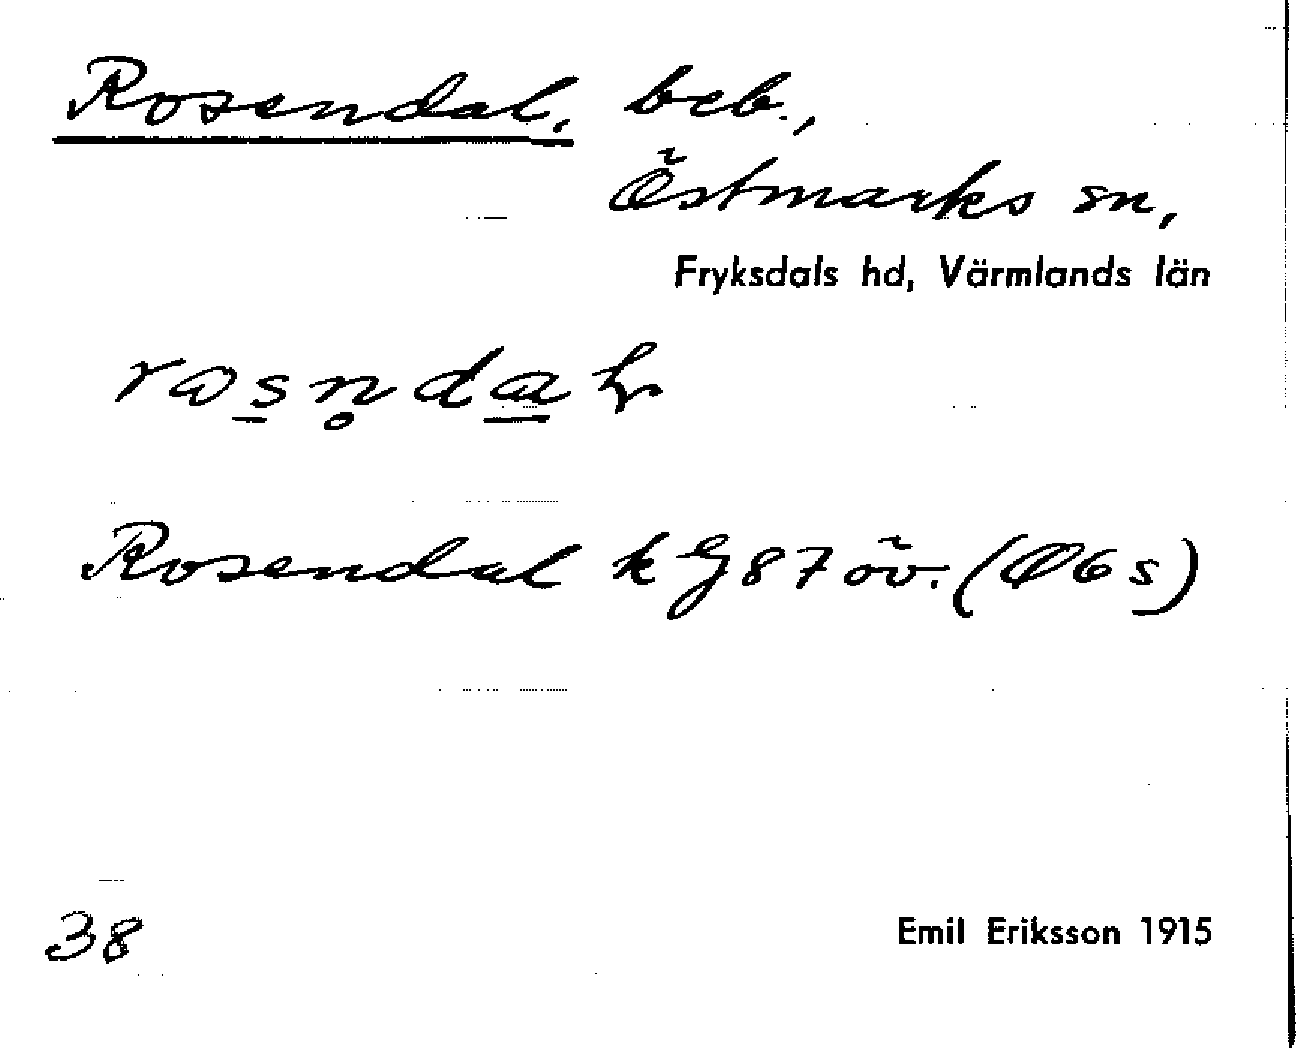 Rosendal, beb.,
Östmarks sn,
Fryksdals hd, Värmlands län
Rosendal k G 87 öv. (Ø 6 s)
38
Emil Eriksson 1915